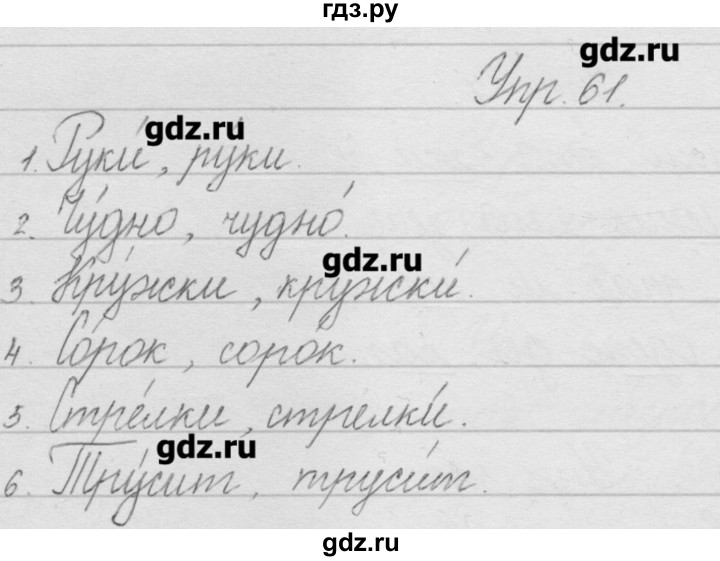 гдз.ру
gdz.ru
Упр. 61.
gdz.ru
1. Руки́, ру́ки.
2. Чу́дно, чудно́.
gdz.ru
3. Кру́жски, кружски́.
4. Со́рок, соро́к.
5. Стре́лки, стрелки́.
gdz.ru
6. Тру́сит, труси́т.
gdz.ru